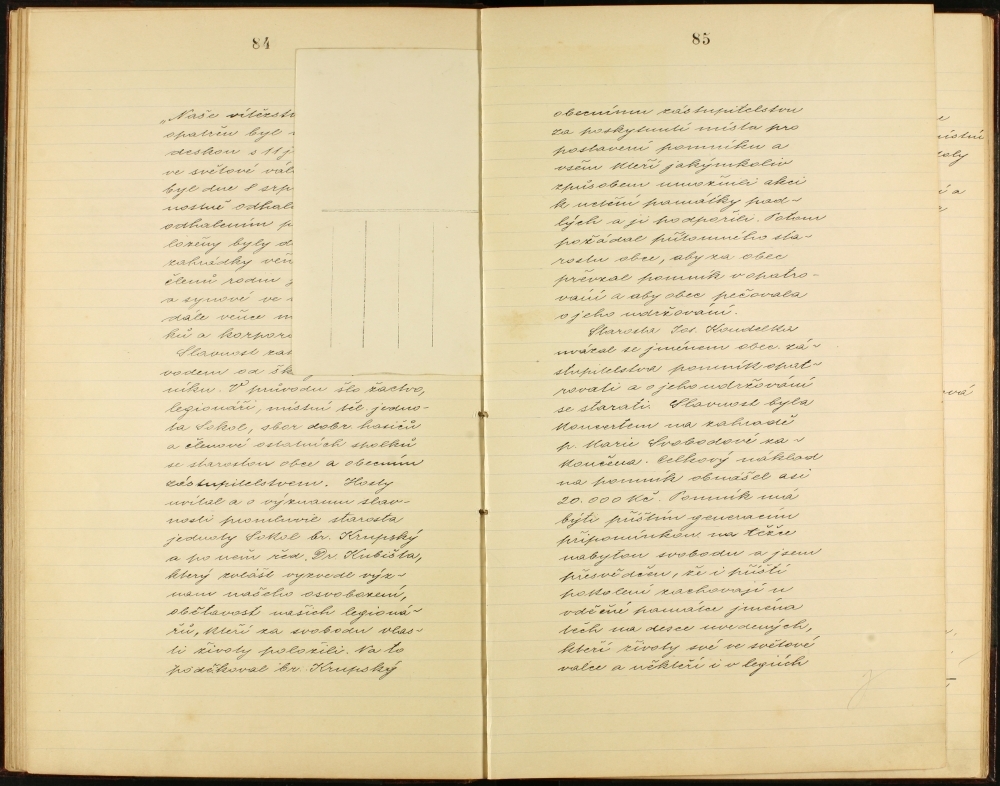 84
„Naše vítězst
opatřen byl
deskou s 11 j
ve světové vál
byl dne 8 srp
nostně odhal
odhalením p
loženy byly d
zahrádky věn
členů rodin
a synové ve
dále věnce m
ků a korpora
Slavnost zah
vodem od šk
níku. V průvodu šlo žactvo,
legionáři, místní těl. jedno-
ta Sokol, sbor dobr. hasičů
a členové ostatních spolků
se starostou obce a obecním
zastupitelstvem. Hosty
uvítal a o významu slav-
nosti promluvil starosta
jednoty Sokol br. Krupský
a po něm řed. Dr. Kubišta,
který zvlášť vyzvedl výz-
nam našeho osvobození,
obětavost našich legioná-
řů, kteří za svobodu vlas-
ti životy položili. Na to
poděkoval br. Krupský
85
obecnímu zástupitelstvu
za poskytnutí místa pro
postavení pomníku a
všem kteří jakýmkoliv
způsobem umožnili akci
k uctění památky pad-
lých a ji podpořili. Potom
požádal přítomného sta-
rostu obce, aby za obec
převzal pomník v opatro-
vání a aby obec pečovala
o jeho udržování.
Starosta Jos. Koudelka
uvázal se jménem obec. zá-
stupitelstva pomník opat-
rovati a o jeho udržování
se starati. Slavnost byla
koncertem na zahradě
p. Marie Svobodové za-
končena. Celkový náklad
na pomník obnášel asi
20.000 Kč. Pomník má
býti příštím generacím
připomínkou na těžce
nabytou svobodu a jsem
přesvědčen, že i příští
pokolení zachovají u
vděčné památce jména
těch na desce uvedených,
kteří životy své ve světové
valce a někteří i v legiích